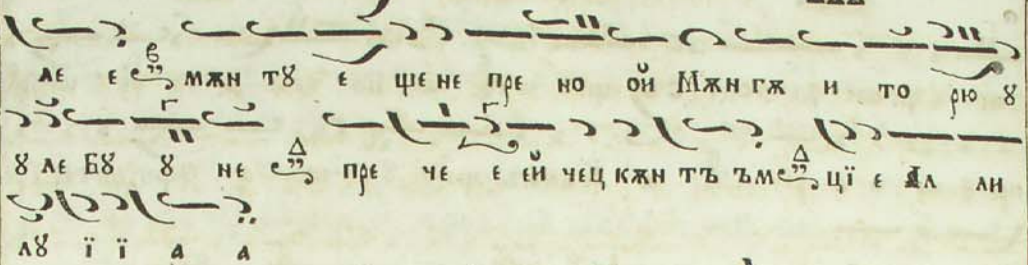 ле е мѫн тꙋ е ще не пре но ой Мѫн гѫ и то рю ꙋ
ꙋ ле Бꙋ ꙋ не пре че е ей чец кѫн тъ ъм цї е Ал ли
лꙋ ї ї а а